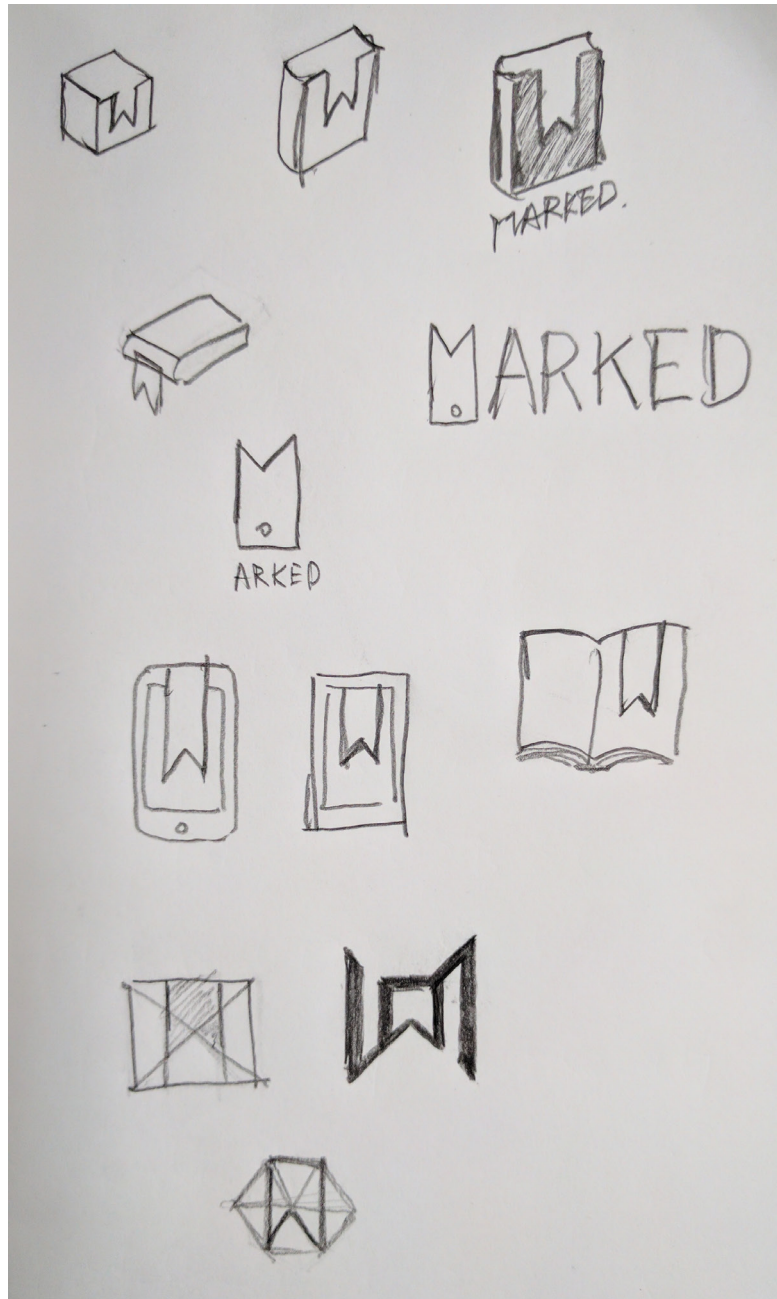 MARKED.
MARKED
ARKED